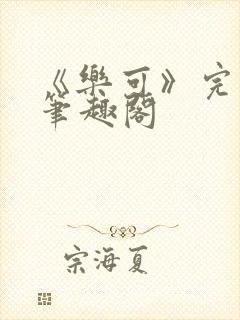 《樂可》完
筆趣閣
宗海夏